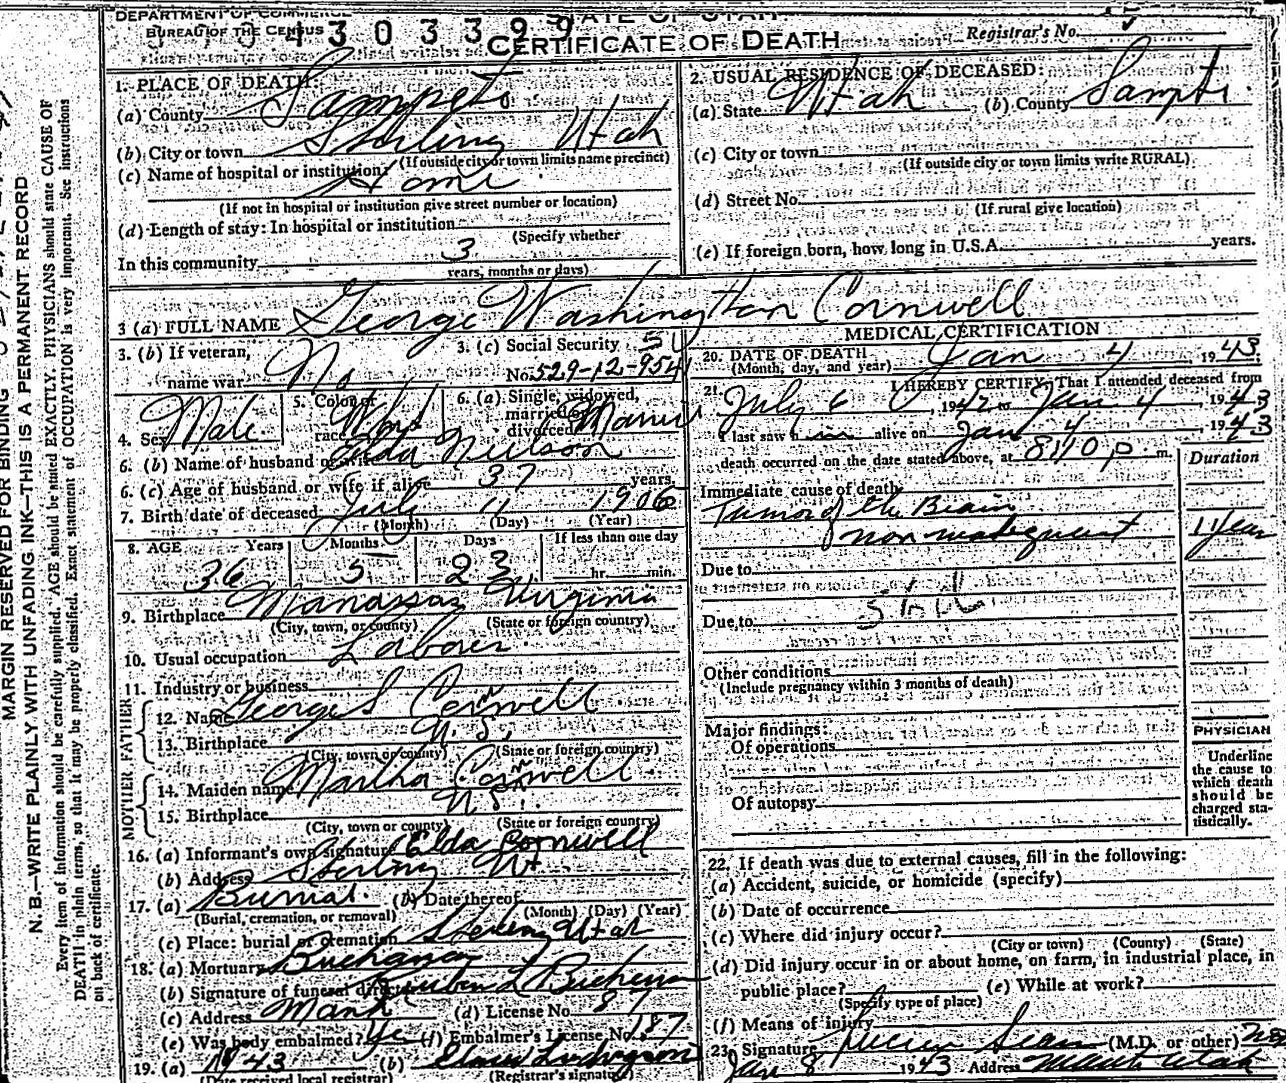 DEPARTMENT OF COMMERCE
BUREAU OF THE CENSUS
430399
STATE OF UTAH
CERTIFICATE OF DEATH
Registrar's No.
MARGIN RESERVED FOR BINDING
N. B.—WRITE PLAINLY WITH UNFADING INK—THIS IS A PERMANENT RECORD
Every item of information should be carefully supplied. AGE should be stated EXACTLY. PHYSICIANS should state CAUSE OF
DEATH in plain terms, so that it may be properly classified. Exact statement of OCCUPATION is very important. See instructions
on back of certificate.
1. PLACE OF DEATH:
(a) County Sanpete
(b) City or town Sterling Utah
(If outside city or town limits name precinct)
(c) Name of hospital or institution: Home
(If not in hospital or institution give street number or location)
(d) Length of stay: In hospital or institution
(Specify whether
In this community 3
years, months or days)
2. USUAL RESIDENCE OF DECEASED:
(a) State Utah (b) County
(c) City or town
(If outside city or town limits write RURAL)
(d) Street No.
(If rural give location)
(e) If foreign born, how long in U.S.A. years.
3 (a) FULL NAME George Washington Cornwell
3. (b) If veteran,
name war No
3. (c) Social Security
No. 529-12-954
4. Sex Male
5. Color or
race
6. (a) Single, widowed,
married or
divorced
6. (b) Name of husband or wife Elda Neilson
6. (c) Age of husband or wife if alive 37 years
7. Birth date of deceased July 11 1906
(Month) (Day) (Year)
8. AGE Years Months Days If less than one day
36 5 23 hr. min.
9. Birthplace Manassas Virginia
(City, town, or county) (State or foreign country)
10. Usual occupation Laborer
11. Industry or business
FATHER
12. Name George S Cornwell
13. Birthplace
(City, town or county) (State or foreign country)
MOTHER
14. Maiden name Martha Cornwell
15. Birthplace
(City, town or county) (State or foreign country)
16. (a) Informant's own signature Elda Cornwell
(b) Address Sterling Ut
17. (a) Burial (b) Date thereof
(Burial, cremation, or removal) (Month) (Day) (Year)
(c) Place: burial or cremation Sterling Utah
18. (a) Mortuary
(b) Signature of funeral director
(c) Address Manti (d) License No. 87
(e) Was body embalmed? Yes (f) Embalmer's License No. 187
19. (a) 1943 (b)
(Date received local registrar) (Registrar's signature)
MEDICAL CERTIFICATION
20. DATE OF DEATH Jan 4, 1943
(Month, day, and year)
21. I HEREBY CERTIFY, That I attended deceased from
July 6, 1942 to Jan 4, 1943
I last saw him alive on Jan 4, 1943
death occurred on the date stated above, at 8:10 p m.
Duration
Immediate cause of death
Tumor of the Brain
1 Year
Due to
Due to
Other conditions
(Include pregnancy within 3 months of death)
Major findings:
Of operations
Of autopsy
PHYSICIAN
Underline
the cause to
which death
should be
charged sta-
tistically.
22. If death was due to external causes, fill in the following:
(a) Accident, suicide, or homicide (specify)
(b) Date of occurrence
(c) Where did injury occur?
(City or town) (County) (State)
(d) Did injury occur in or about home, on farm, in industrial place, in
public place? (e) While at work?
(Specify type of place)
(f) Means of injury
23. Signature (M.D. or other)
Jan 8 1943 Address Manti Utah